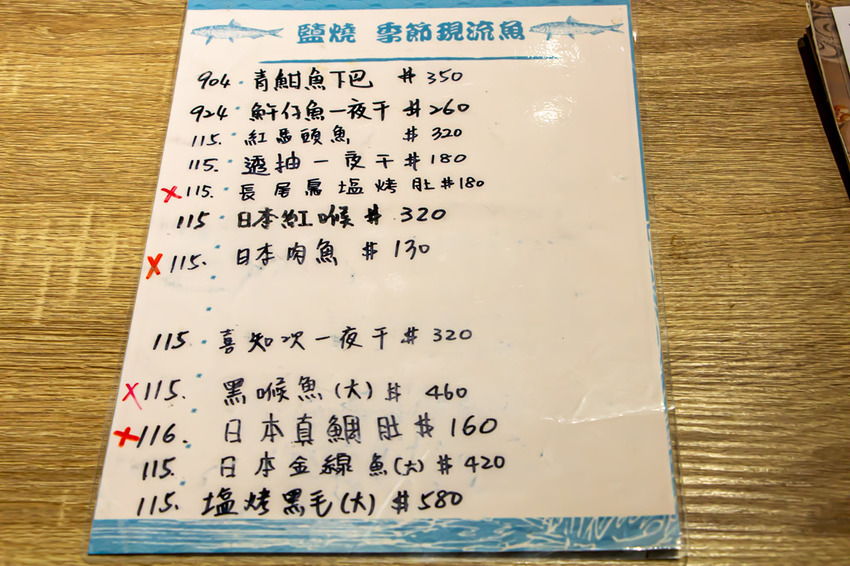 鹽燒 季節現流魚
904. 青魽魚下巴 # 350
924. 魚午仔魚一夜干 # 260
115. 紅馬頭魚 # 320
115. 透抽一夜干 # 180
X 115. 長尾鳥塩烤肚 # 180
115 日本紅喉 # 320
X 115. 日本肉魚 # 130
115. 喜知次一夜干 # 320
X 115. 黑喉魚(大) # 460
X 116. 日本真鯛肚 # 160
115. 日本金線魚(大) # 420
115. 塩烤黑毛(大) # 580